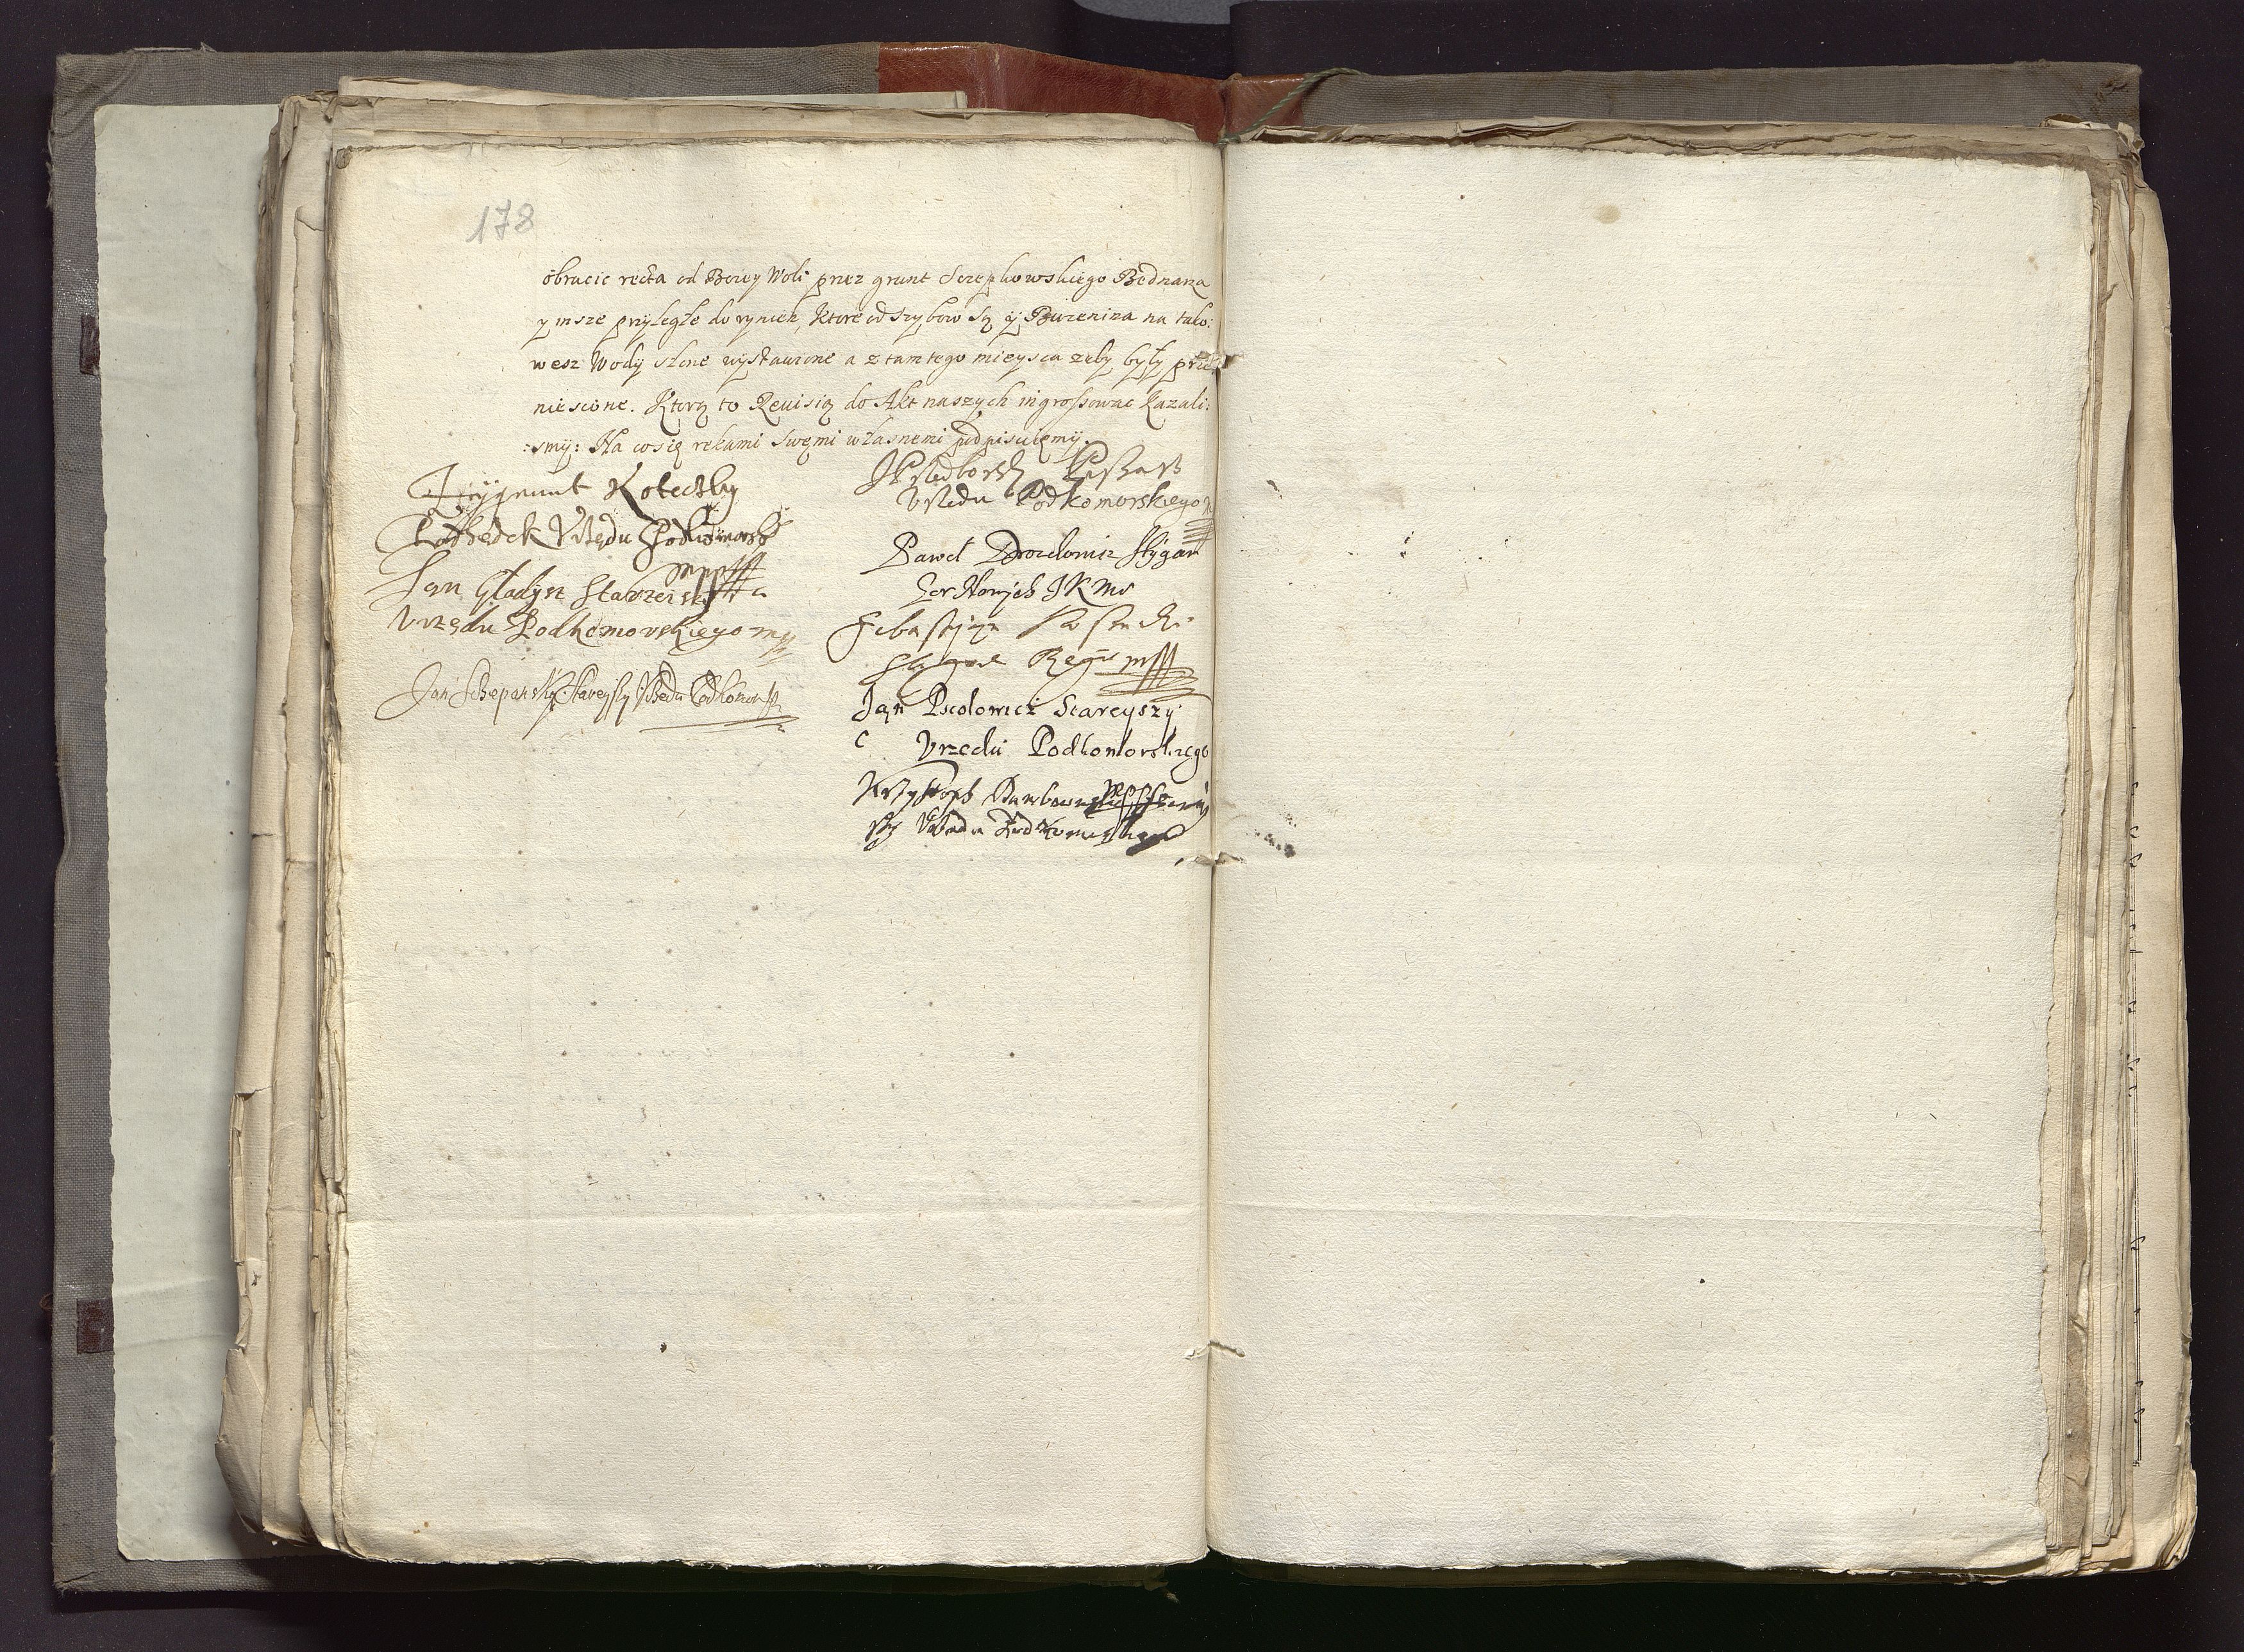 178
obrucic recta od Bożey Woli przez grunt Szczepkowskiego Bednarza
y insze przyległe do rynien, które od szybow są y Burzenina na tako:
wesz Wody słone wystawione a z tamtego mieysca zeby były prze
niesione. Ktorą to Rewisią do Akt naszych ingrossowac kazali:
:smy: Na co się rękami swęmi własnemi podpisuięmy.
Zygmunt Kotecky
Urzędu Podkomorsk
Jan Gładysz Starzeiszy
Vrzędu Podkomorskiego mp
Jan Sczepansky Stareyszy Urzedu Podkomor
Pisarz
Vrzedu Podkomorskiego
Paweł Drozdowicz Sztygar
Gor Słonych JKMci
Sebastyan
Sztygar
Jan Pscolowicz Stareyszy
Vrzedu Podkomorskiego
Krzysztoph
Vrzedu Podkomorskiego